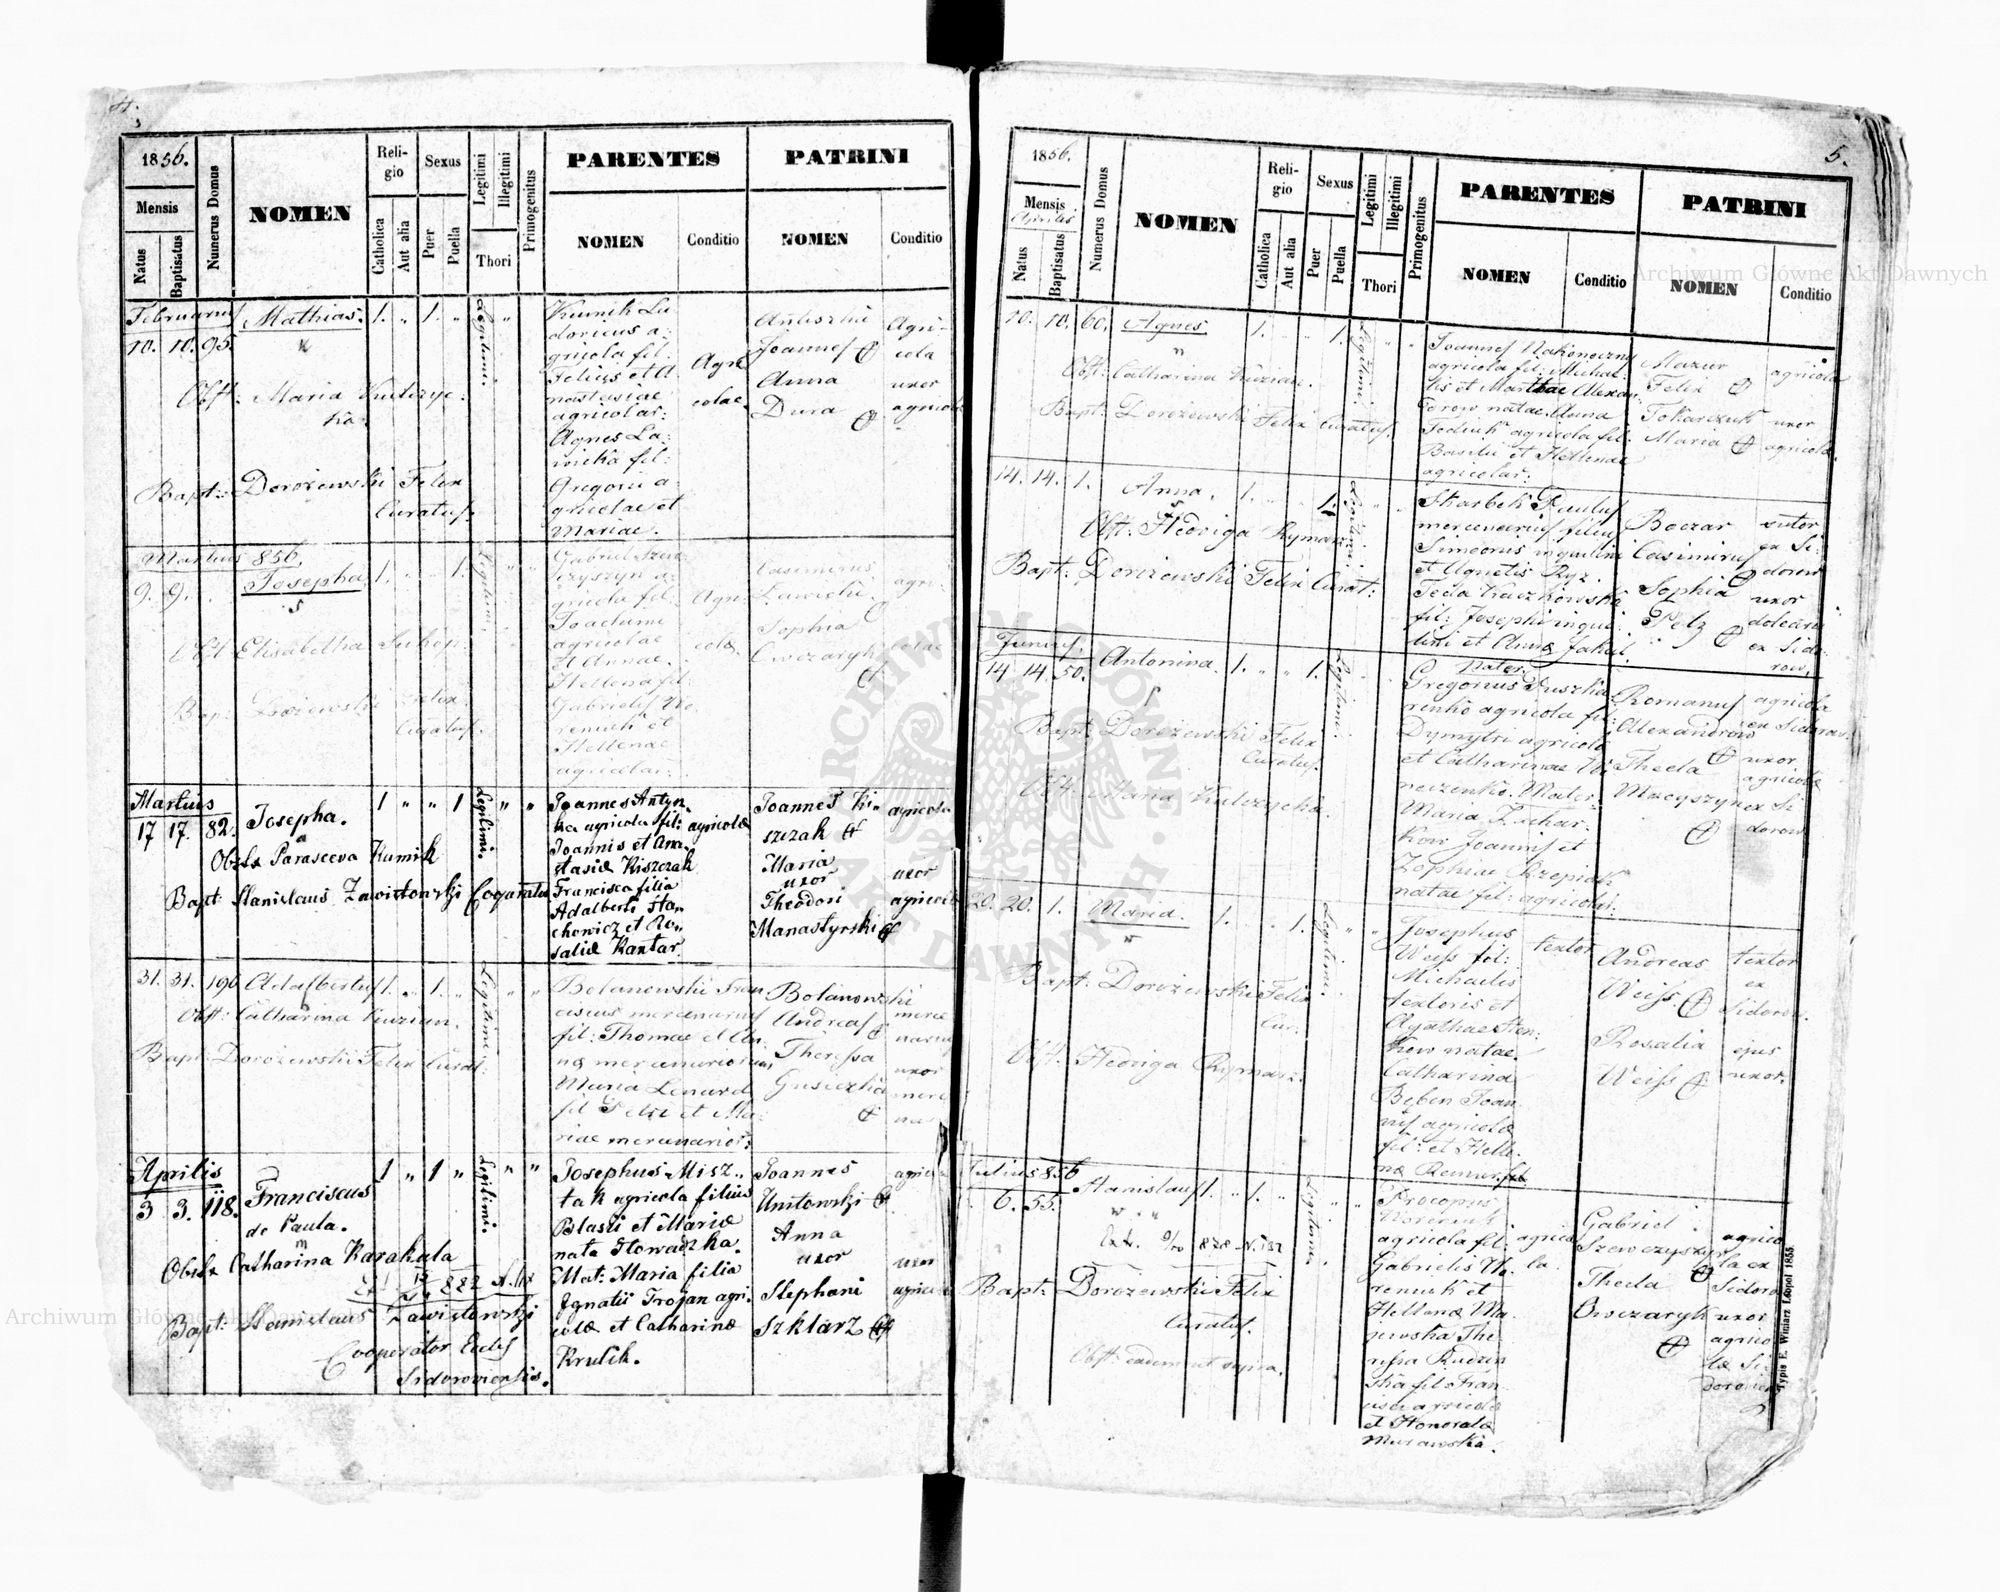 4.
1856.
Mensis
Natus
Baptisatus
Numerus Domus
NOMEN
Reli-
gio
Catholica
Aut alia
Sexus
Puer
Puella
Legitimi
Illegitimi
Thori
Primogenitus
PARENTES
NOMEN
Conditio
PATRINI
NOMEN
Conditio
Februarius
10. 10. 95.
Mathias.
1. „ 1. „
Legitimi.
Obst: Maria Kulczyc:
ka.
Bapt: Dorożewski Felix
Curatus.
Kumik Lu
dovicus a:
gricola fil:
Felicis et A
nastasiae
agricolar:
Agnes La:
wicka fil:
Gregorii a:
gricolae et
Mariae.
Agri
colae.
Joannes
Anna
Dura
Agri-
cola
uxor
agricola
Martius 856.
9. 9.
Josepha
1. 1.
Legitimi.
Obst Elisabetha
Felix
Curatus.
gricola fil:
Joachimi
agricolae
et Annae.
Hellena fil:
Gabrielis Wo
reniuk et
Hellenae
agricolar:
Agri
colae
Casimirus
Sawicki
Sophia
Owczaryk
agri:
colae
Martius
17 17. 82.
Josepha.
1 „ „ 1
Legitimi.
Obstx Parasceva Kumik
Bapt: Stanislaus Zawistowski Cooperator
Joannes Antyn.
ka agricola fil:
Joannis et Ana.
stasiæ Kiszczak
Francisca filia
Adalberti Sta,
chowicz et Ro,,
saliæ Kantar.
agricolæ
Joannes Ki„
szczak
Maria
uxor
Theodori
Manastyrski
agricola
uxor
agricolæ
31. 31. 190
Adalbertus
1. „ 1. „
Legitimi.
Obst: Catharina Kuzian.
Bapt: Dorożewski Felix Curat:
Bolanowski Fran
ciscus mercenarius
fil: Thomae et An
næ mercenariorum
Maria Lenard
fil Petri et Ma:
riae mercenarior:
Bolanowski
Andreas
Theressa
Gusiczka
merce
narius
uxor
merce
nar
Aprilis
3 3. 118.
Franciscus
de Paula.
1 „ 1 „
Legitimi.
Obstx Catharina Karakula
Bapt: Stanislaus Zawistowski
Cooperator Eccles
Sidoroviensis.
Josephus Misz,,
tak agricola filius
Blasii et Mariæ
nata Stowadzka.
Mat: Maria filia
Ignatii Trojan agri.
colæ et Catharinæ
Krulik.
Joannes
Unitowski
Anna
uxor
Stephani
Szklarz
agricola
uxor
agricolæ
5.
1856.
Mensis
Aprilis
Natus
Baptisatus
Numerus Domus
NOMEN
Reli-
gio
Catholica
Aut alia
Sexus
Puer
Puella
Legitimi
Illegitimi
Thori
Primogenitus
PARENTES
NOMEN
Conditio
PATRINI
NOMEN
Conditio
10. 10. 60.
Agnes
1. „ „ 1.
Legitimi.
Obst: Catharina Kuzian.
Bapt: Dorożewski Felix Curatus.
Joannes Nakoneczny
agricola fil: Michae
lis et Marthae Alexan
drow natae. Anna
Fediuk agricola fil.
Basilii et Hellenae
agricolar:
Mazur
Felix
Tokarczuk
Maria
agricola
uxor
agricola.
14. 14. 1.
Anna.
1. „ „ 1.
Legitimi.
Obst: Hedviga Rymarz.
Bapt: Dorożewski Felix Curat:
Skarbek Paulus
mercenarius filius
Simeonis inquilini
et Agnetis Ryz.
Tecla Kaczkowska
fil: Josephi inqui
lini et Annæ Jakul.
Boczar
Casimirus
Sophia
Pelz
sutor
ex Si:
dorow
uxor
dolearii
ex Sido
row.
Junius.
14 14. 50.
Antonina.
1. „ „ 1.
Legitimi.
Bapt: Dorożewski Felix
Curatus.
Obst: Maria Kulczycka.
Pater.
Gregorius Puszka
renko agricola fil:
Dymytri agricolæ
et Catharinae
Mater.
Maria Zachar.
kow Joannis et
Zophiae Rzepiak
natae fil: agricolar.
Romanus
Alexandrow
Thecla
Maczyszyn
agricola
ex Sidorow.
uxor
agricolæ
ex Si
dorow
20. 20. 1.
Maria.
1. „ „ 1.
Legitimi.
Bapt: Dorożewski Felix
Cur.
Obst: Hedviga Rymarz.
Josephus
Weiss fil:
Michaelis
textoris et
Agathae Sten:
kow natae.
Catharina
Beben Joan
nis agricolæ
fil: et Helle
næ
textor
Andreas
Weiss.
Rosalia
Weiss
textor
ex
Sidorow.
ejus
uxor.
Julius 856
6. 55.
Stanislaus
1. „ 1.
Legitimi.
Bapt: Dorożewski Felix
Curatus.
Obst: eadem ut supra.
Procopius
Woreniuk
agricola fil:
Gabrielis Wo
reniuk et
Hellenæ Ma
jewska The
ressa Rudzin
ska fil: Fran
cisci agricolæ
et Honoratæ
Murawska.
agrico
la.
Gabriel
Szewczyszyn
Thecla
Owczaryk
agrico
la ex
Sidorow
uxor
agrico
læ Si
dorow
Typis E. Winiarz Leopol 1855.
Archiwum Główne Akt Dawnych
Archiwum Główne Akt Dawnych
ARCHIWUM GŁÓWNE AKT DAWNYCH